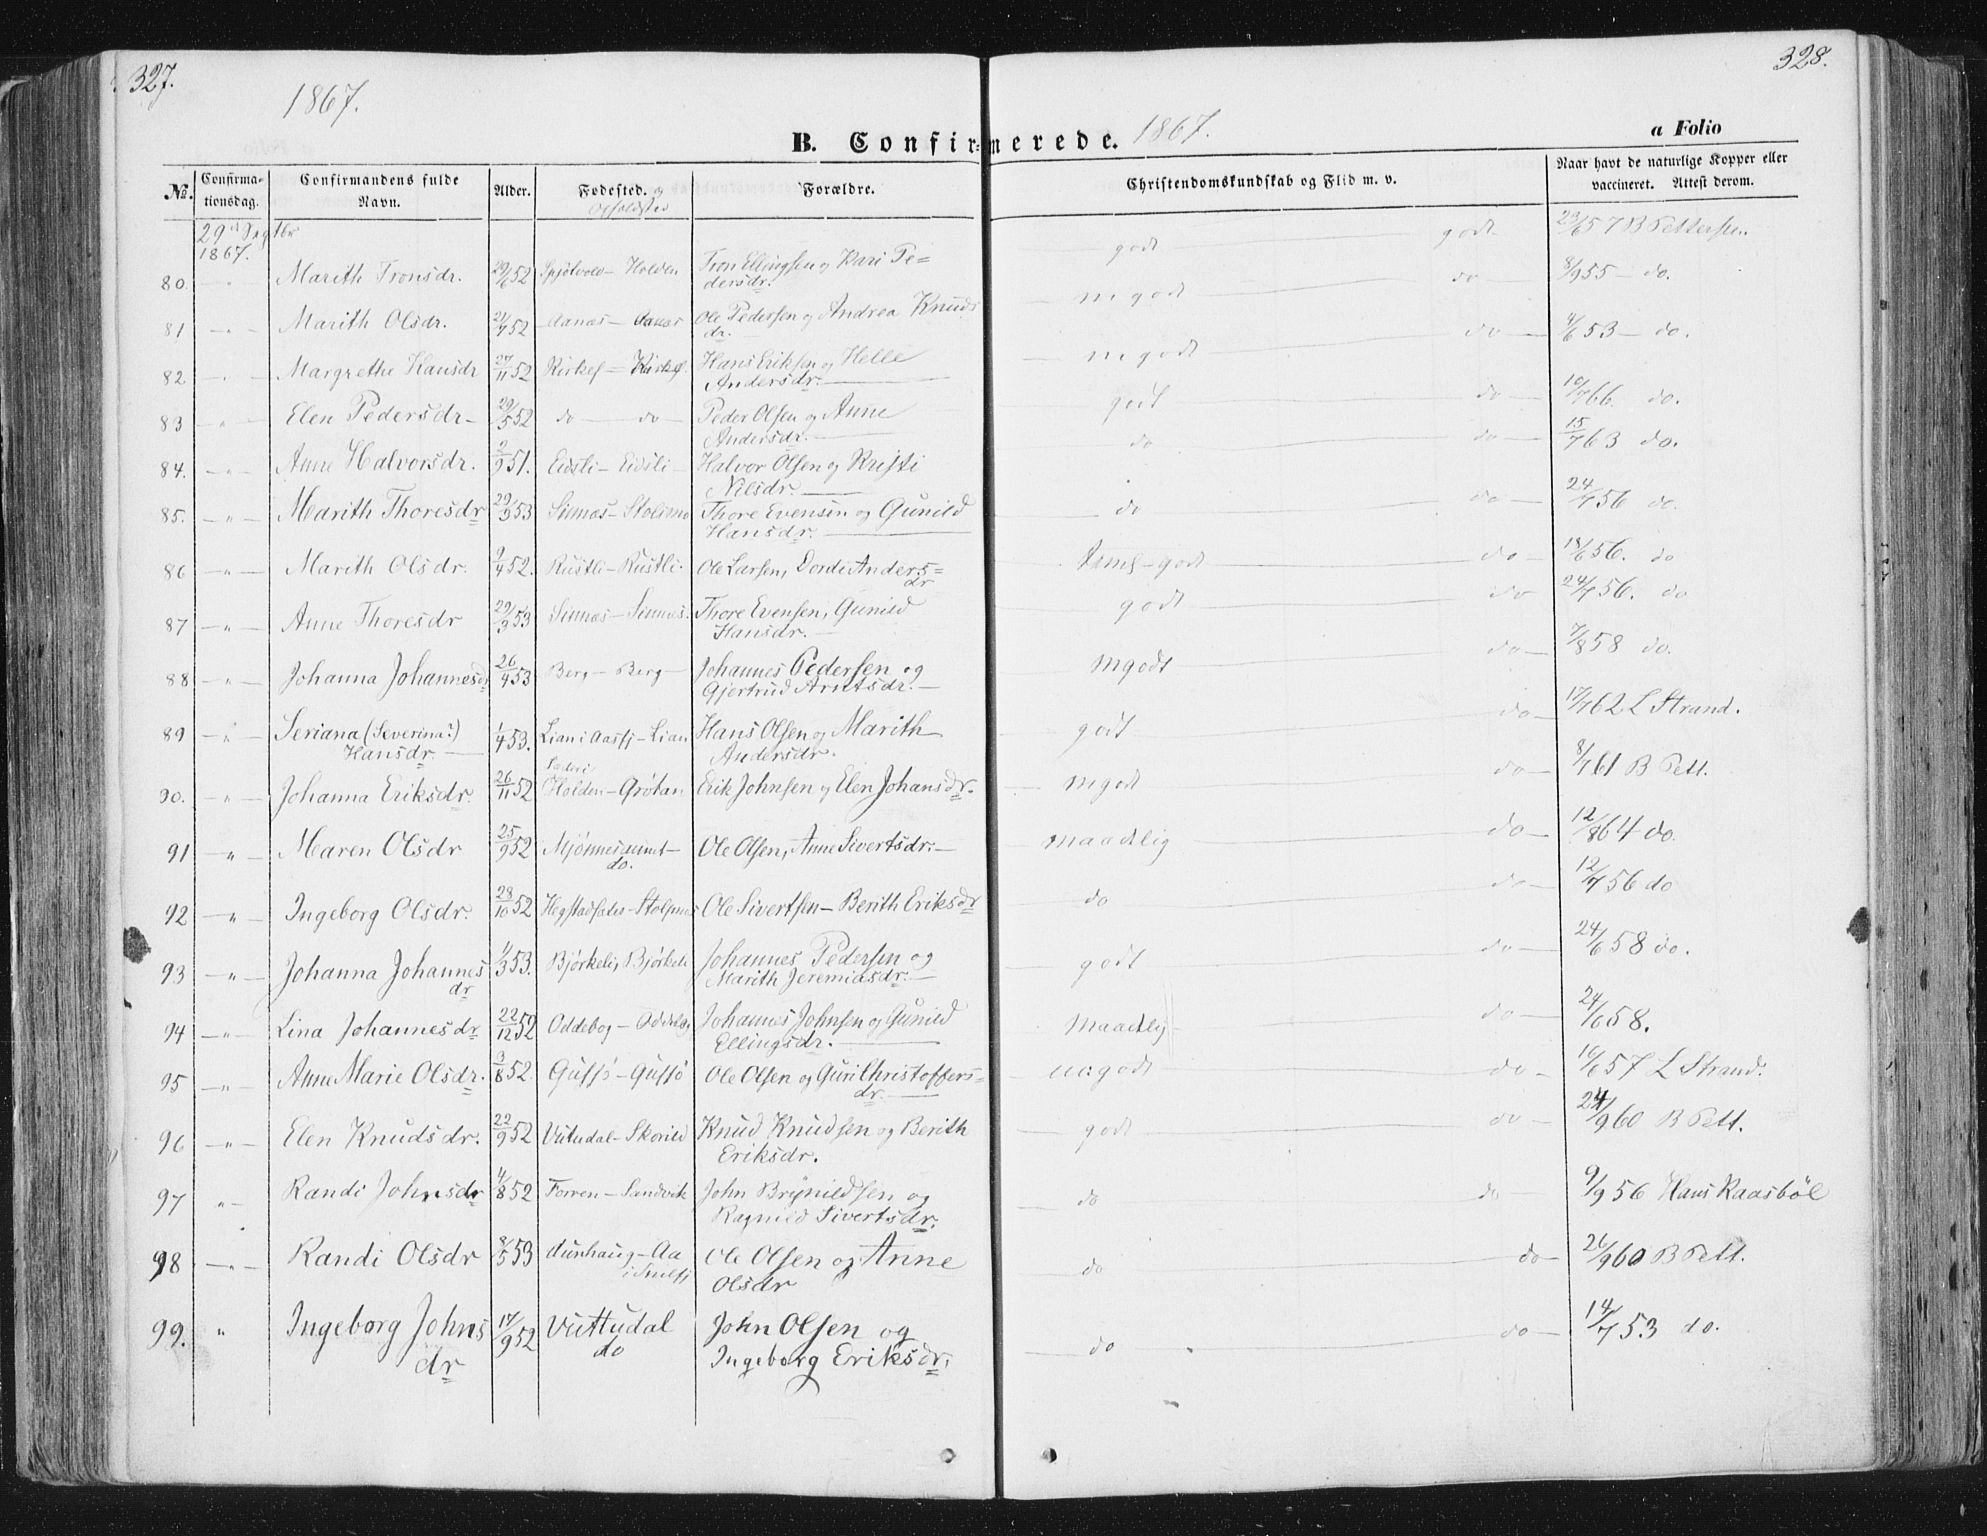 327.
328.
1867.
B. Confirmerede. 1867.
a Folio
No.
Confirma-
tionsdag.
Confirmandens fulde
Navn.
Alder.
Fødested. og
Opholdsted
Forældre.
Christendomskundskab og Flid m. v.
Naar havt de naturlige Kopper eller
vaccineret. Attest derom.
29 Septbr
1867.
80. Marith Tronsdr. 29/6 52 Spjøtvold - Holden Tron Ellingsen og Kari Pe=
dersdr. godt godt 23/6 57 B Pettersen.
81 Marith Olsdr. 21/7 52 Aanæs - Aanæs Ole Pedersen og Andrea Knuds
dr. mgodt do 8/9 55 do.
82 Margrethe Hansdr 27/11 52 Kirkes = Kirkes Hans Eriksen og Helle
Andersdr. mgodt do 4/6 53 do.
83 Elen Pedersdr 29/5 52 do do Peder Olsen og Anne
Andersdr. godt do 10/7 66 do.
84. Anne Halvorsdr. 2/9 51. Eidsli - Eidsli Halvor Olsen og Kristi
Nilsdr. do do 15/7 63 do.
85. Marith Thoresdr 29/3 53 Sinnæs - Thore Evensen og Gunild
Hansdr. do do 24/7 56 do.
86 Marith Olsdr. 9/4 52. Rustli - Rustli. Ole Larsen, Dordi Anders=
dr godt do 18/6 56. do
87 Anne Thoresdr 29/3 53 Sinnæs - Sinnæs. Thore Evensen, Gunild
Hansdr. godt do 24/7 56. do
88 Johanna Johannesdr 26/4 53 Berg - Berg Johannes Pedersen og
Gjertrud Arntsdr. mgodt do 7/8 58 do.
89 Seriana (Severina?)
Hansdr. 1/4 53. Lian i Aasfj - Lian Hans Olsen og Marith
Andersdr. godt do 17/7 62 L Strand.
90. Johanna Eriksdr. 26/11 52 Holden - Grøtan Erik Johnsen og Elen Johansdr. mgodt do 8/7 61 B Pett.
91 Maren Olsdr 25/9 52 Mjønnesaunet
do. Ole Olsen, Anne Sivertsdr. maadlig do 12/8 64 do.
92 Ingeborg Olsdr. 28/10 52 Hegstadsæter - Stolpnes Ole Sivertsen - Berith Eriksdr do do 12/7 56 do
93 Johanna Johannes
dr 4/3 53. Bjørkeli, Bjørkeli Johannes Pedersen og
Marith Jeremiasdr. godt do 24/6 58 do.
94 Lina Johannesdr 22/12 52 Oddebog - Johannes Johnsen og Gunild
Ellingsdr. maadlig do 24/6 58.
95 Anne Marie Olsdr. 3/8 52. Gusjø - Gusjø Ole Olsen og Guri Christoffers=
dr. do 10/6 57 L Strand.
96 Elen Knudsdr. 22/9 52 Vutudal - Skorild Knud Knudsen og Berith
Eriksdr. godt do 24/9 60 B Pett.
97 Randi Johnsdr 4/8 52 Forren - Sandvik John Brynildsen og
Ragnild Sivertsdr. do do 9/9 56 Hans Raasbøl
98 Randi Olsdr 8/5 53 - Aa
i Snelfj Ole Olsen og Anne
Olsdr do do 26/9 60 B Pett.
99. Ingeborg Johns
dr 17/9 52 Vuttudal
do John Olsen og
Ingeborg Eriksdr. do do 14/7 53 do.